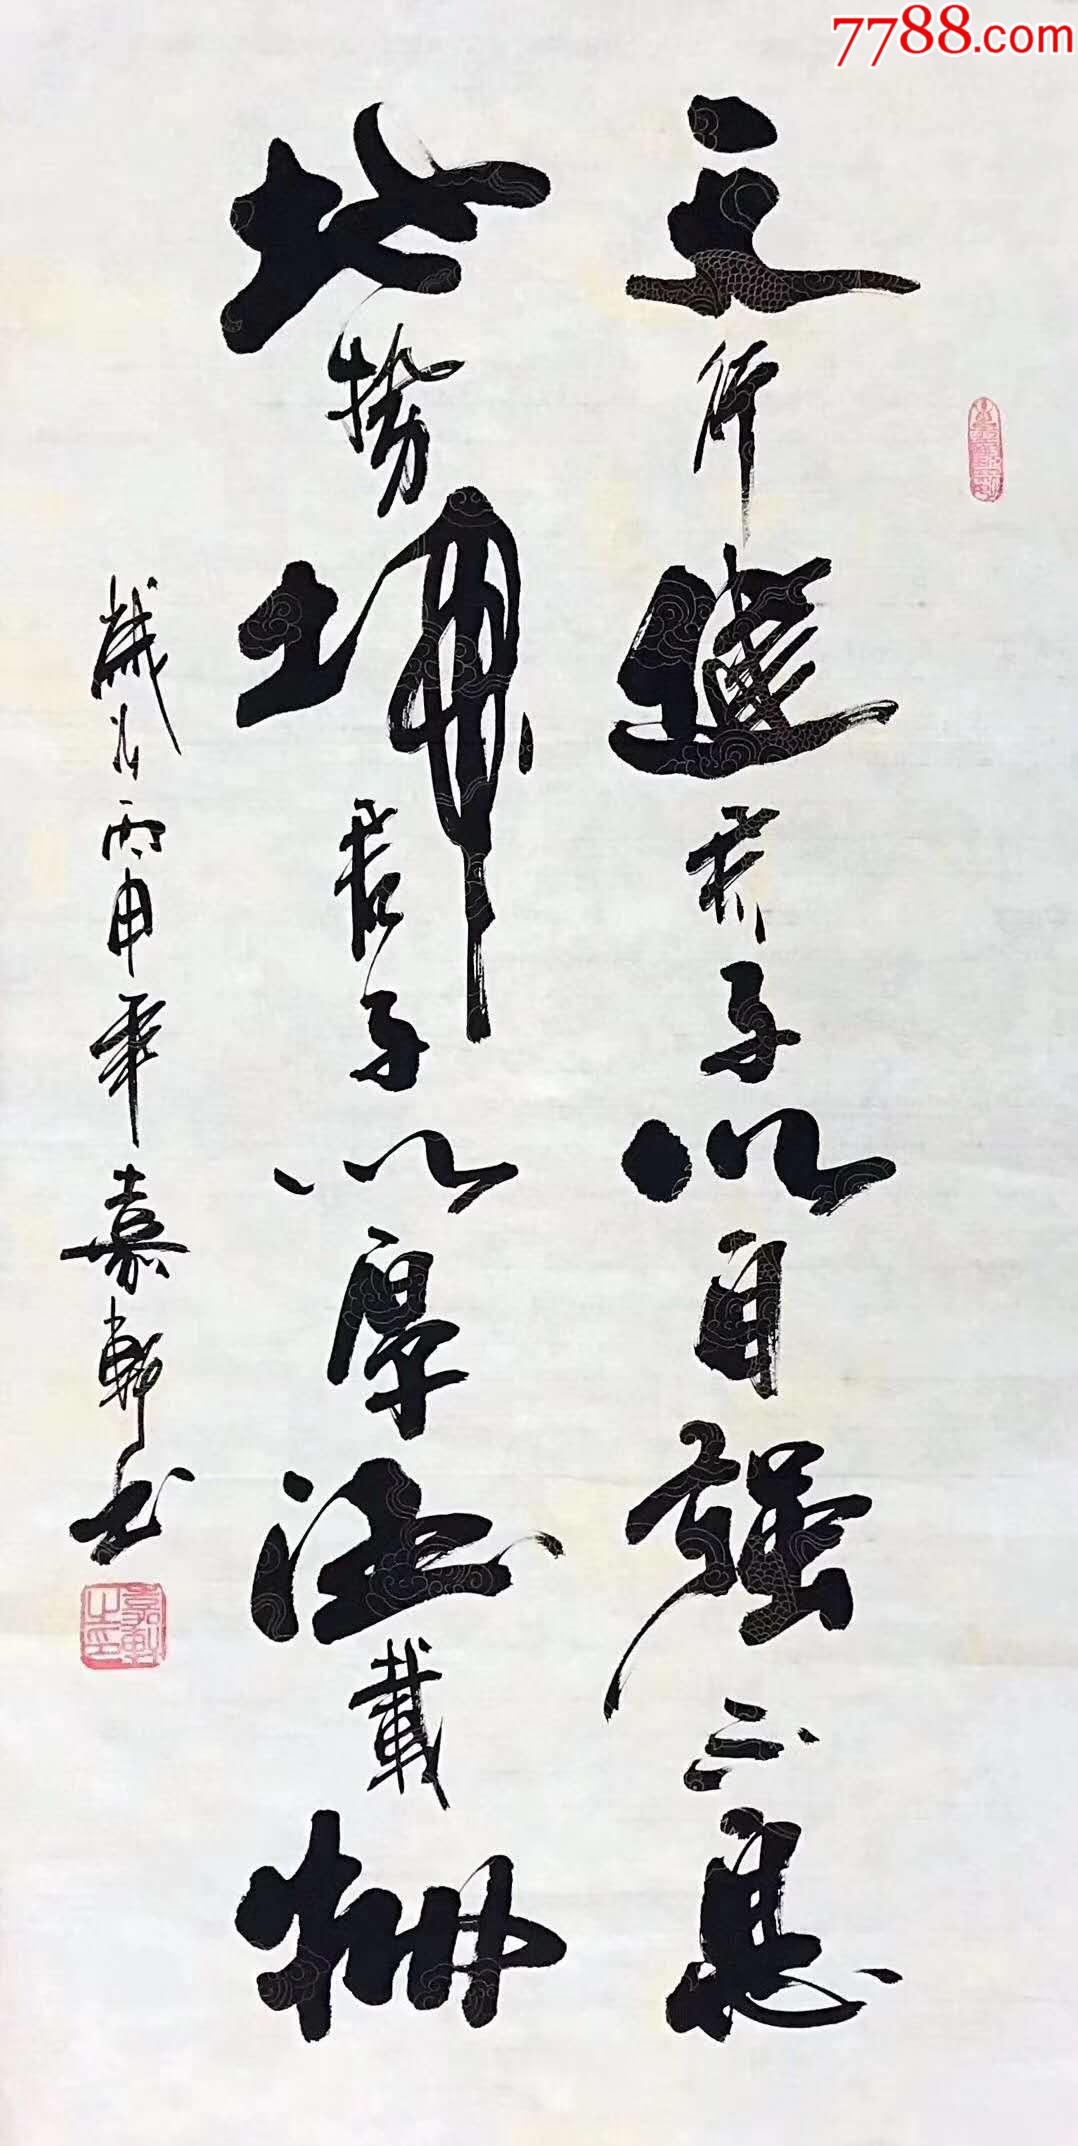 7788.com
天行健君子以自强不息
地勢坤君子以厚德載物
歲次丙申年嘉軒书
嘉軒之印